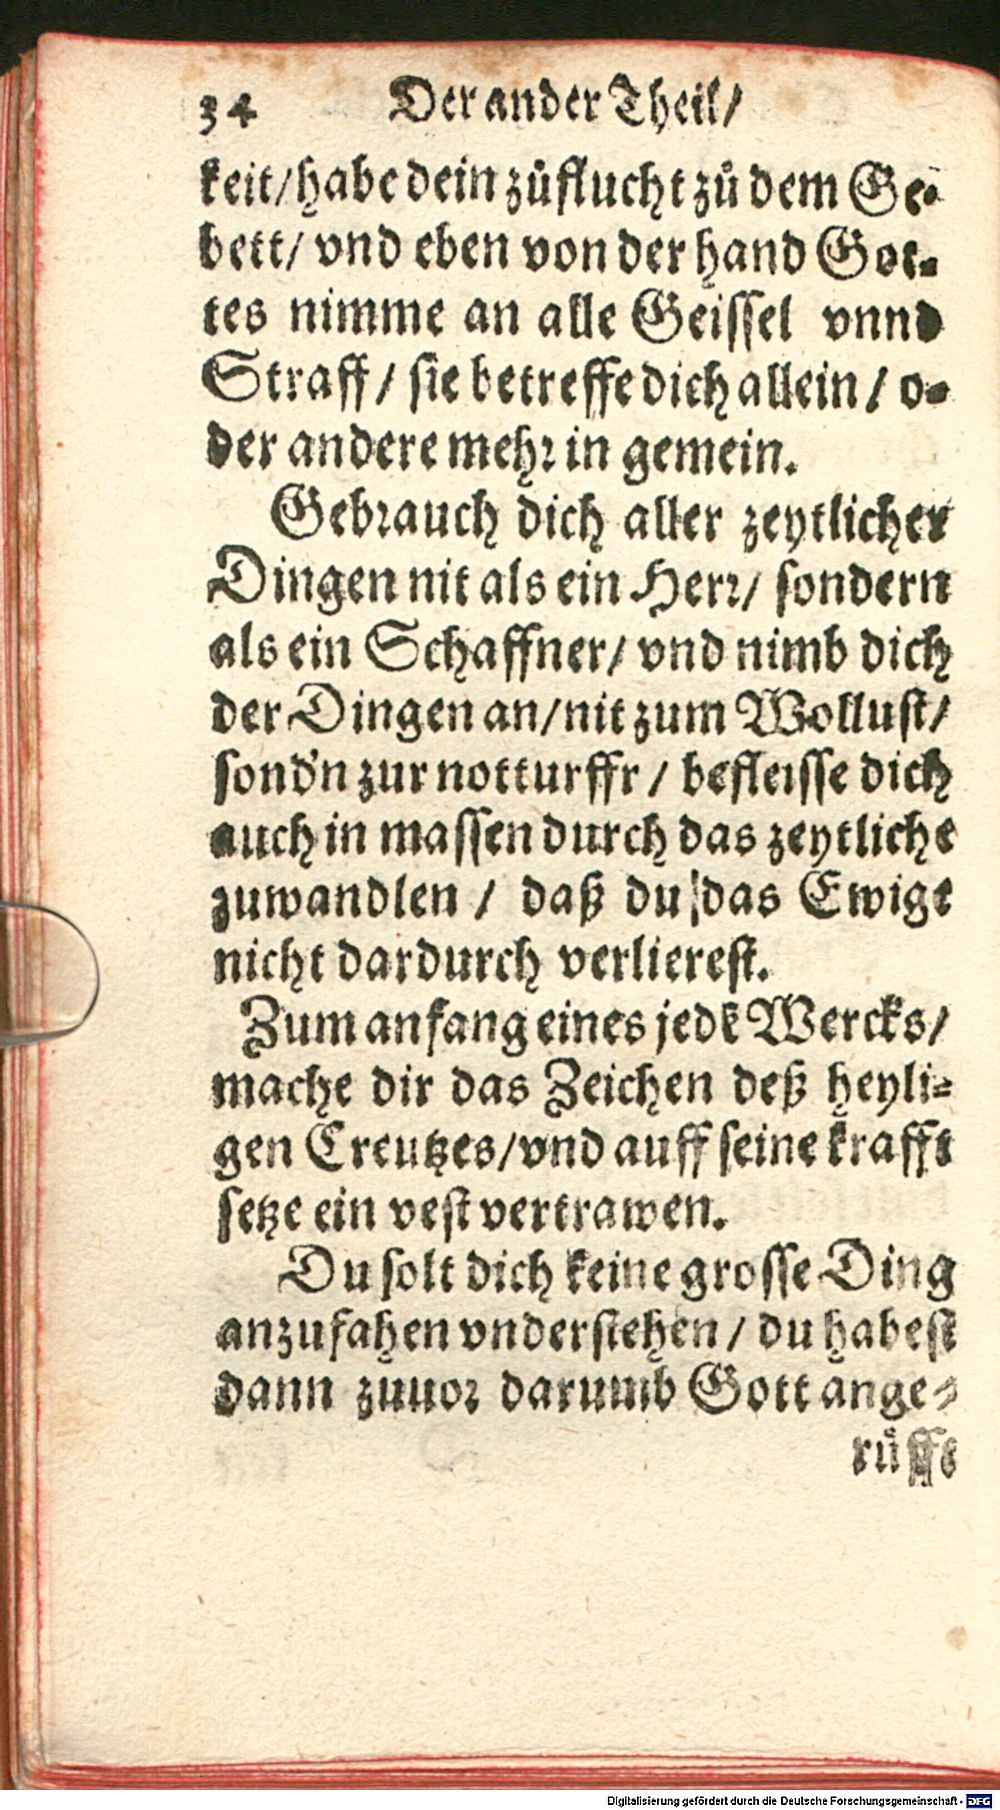 34 Der ander Theil/
keit/ habe dein zůflucht zů dem Ge-
bett/ vnd eben von der hand Got-
tes nimme an alle Geissel vnnd
Straff/ sie betreffe dich allein/ o-
der andere mehr in gemein.
Gebrauch dich aller zeytlicher
Dingen nit als ein Herr/ sondern
als ein Schaffner/ vnd nimb dich
der Dingen an/ nit zum Wollust/
sond'n zur notturffr/ befleisse dich
auch in massen durch das zeytliche
zuwandlen/ daß du das Ewige
nicht dardurch verlierest.
Zum anfang eines jedē Wercks/
mache dir das Zeichen deß heyli-
gen Creutzes/ vnd auff seine krafft
setze ein vest vertrawen.
Du solt dich keine grosse Ding
anzufahen vnderstehen/ du habest
dann zuuor darumb Gott ange-
růfft
Digitalisierung gefördert durch die Deutsche Forschungsgemeinschaft - DFG